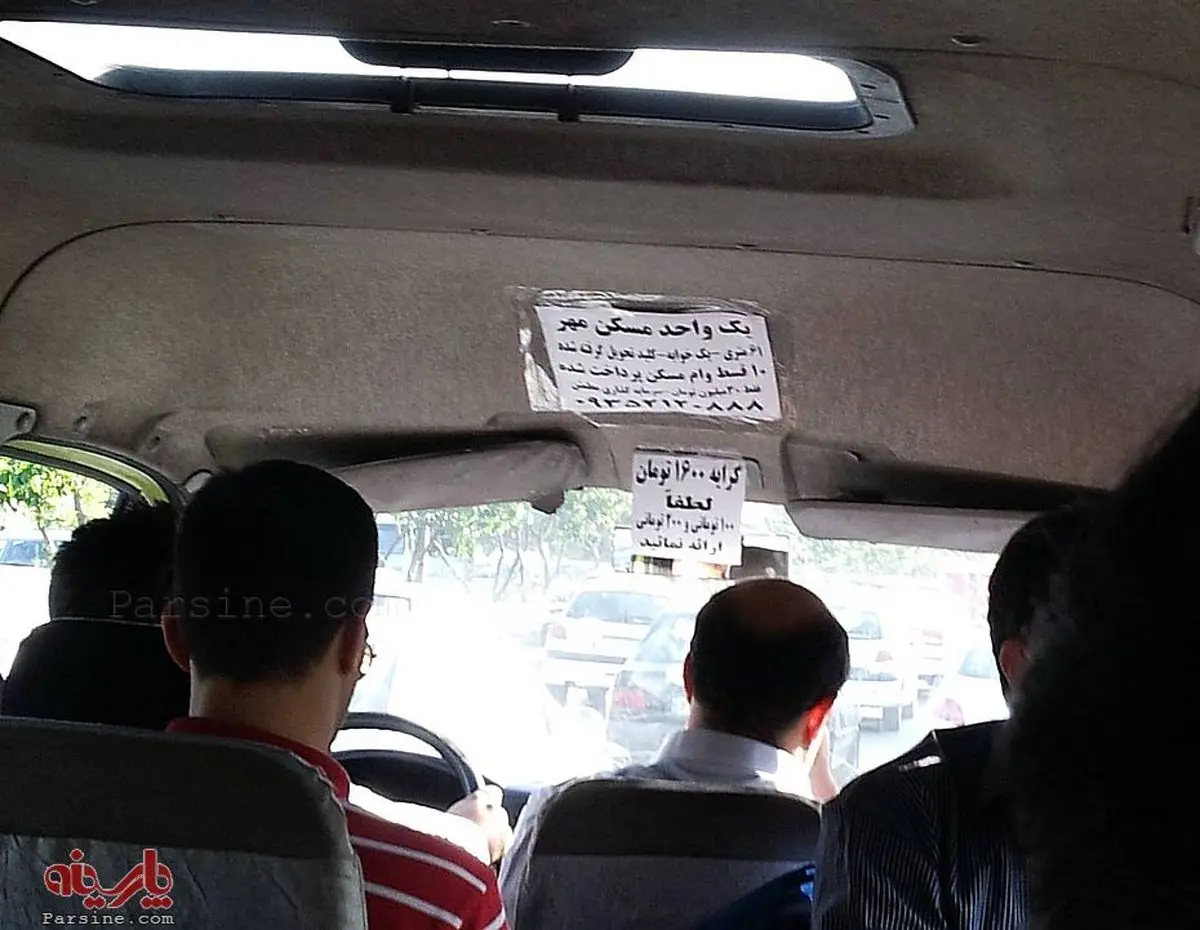 یک واحد مسکن مهر
۶۱ متری -یک خوابه-کلید تحویل گرفته شده
۱۰ قسط وام مسکن پرداخت شده
فقط ۳۰میلیون تومان-سرمایه گذاری مطمئن
۰۹۳۵۲۱۲۰۸۸۸
کرایه ۱۶۰۰ تومان
لطفاً
۱۰۰ تومانی و ۲۰۰ تومانی
ارائه نمائید
Parsine.com
پارسینه
Parsine.com